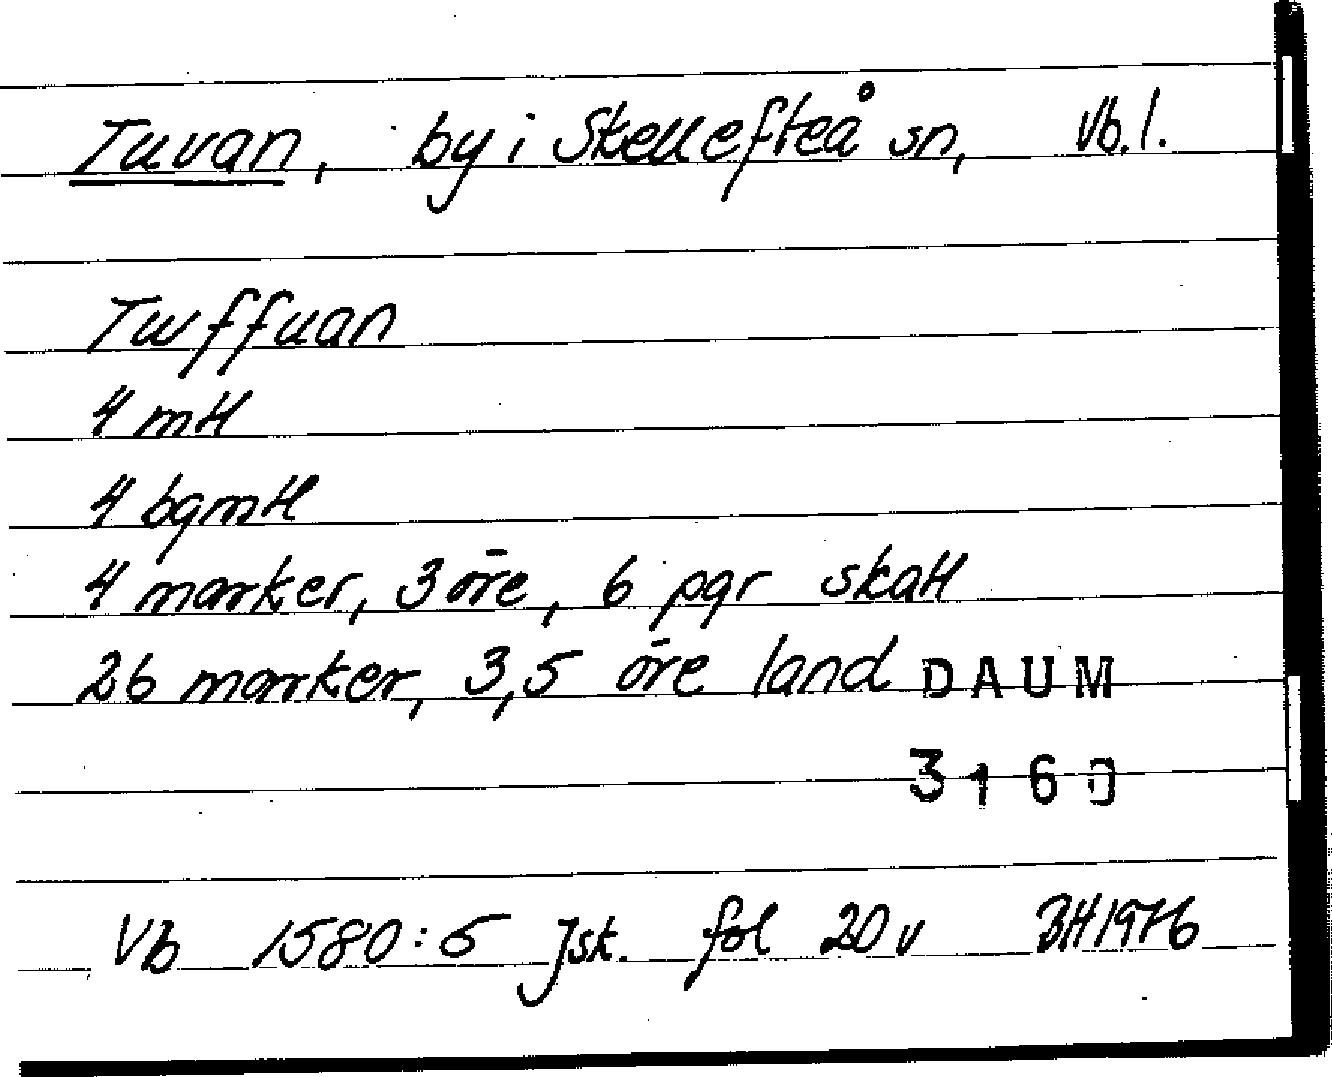 Tuvan, by i Skellefteå sn, Vb.l.
Twffuan
4 mtl
4 bgmtl
4 marker, 3 öre, 6 pgr skatt
26 marker, 3,5 öre land DAUM
3160
Vb 1580:5 Jsk. fol 20v BH1976